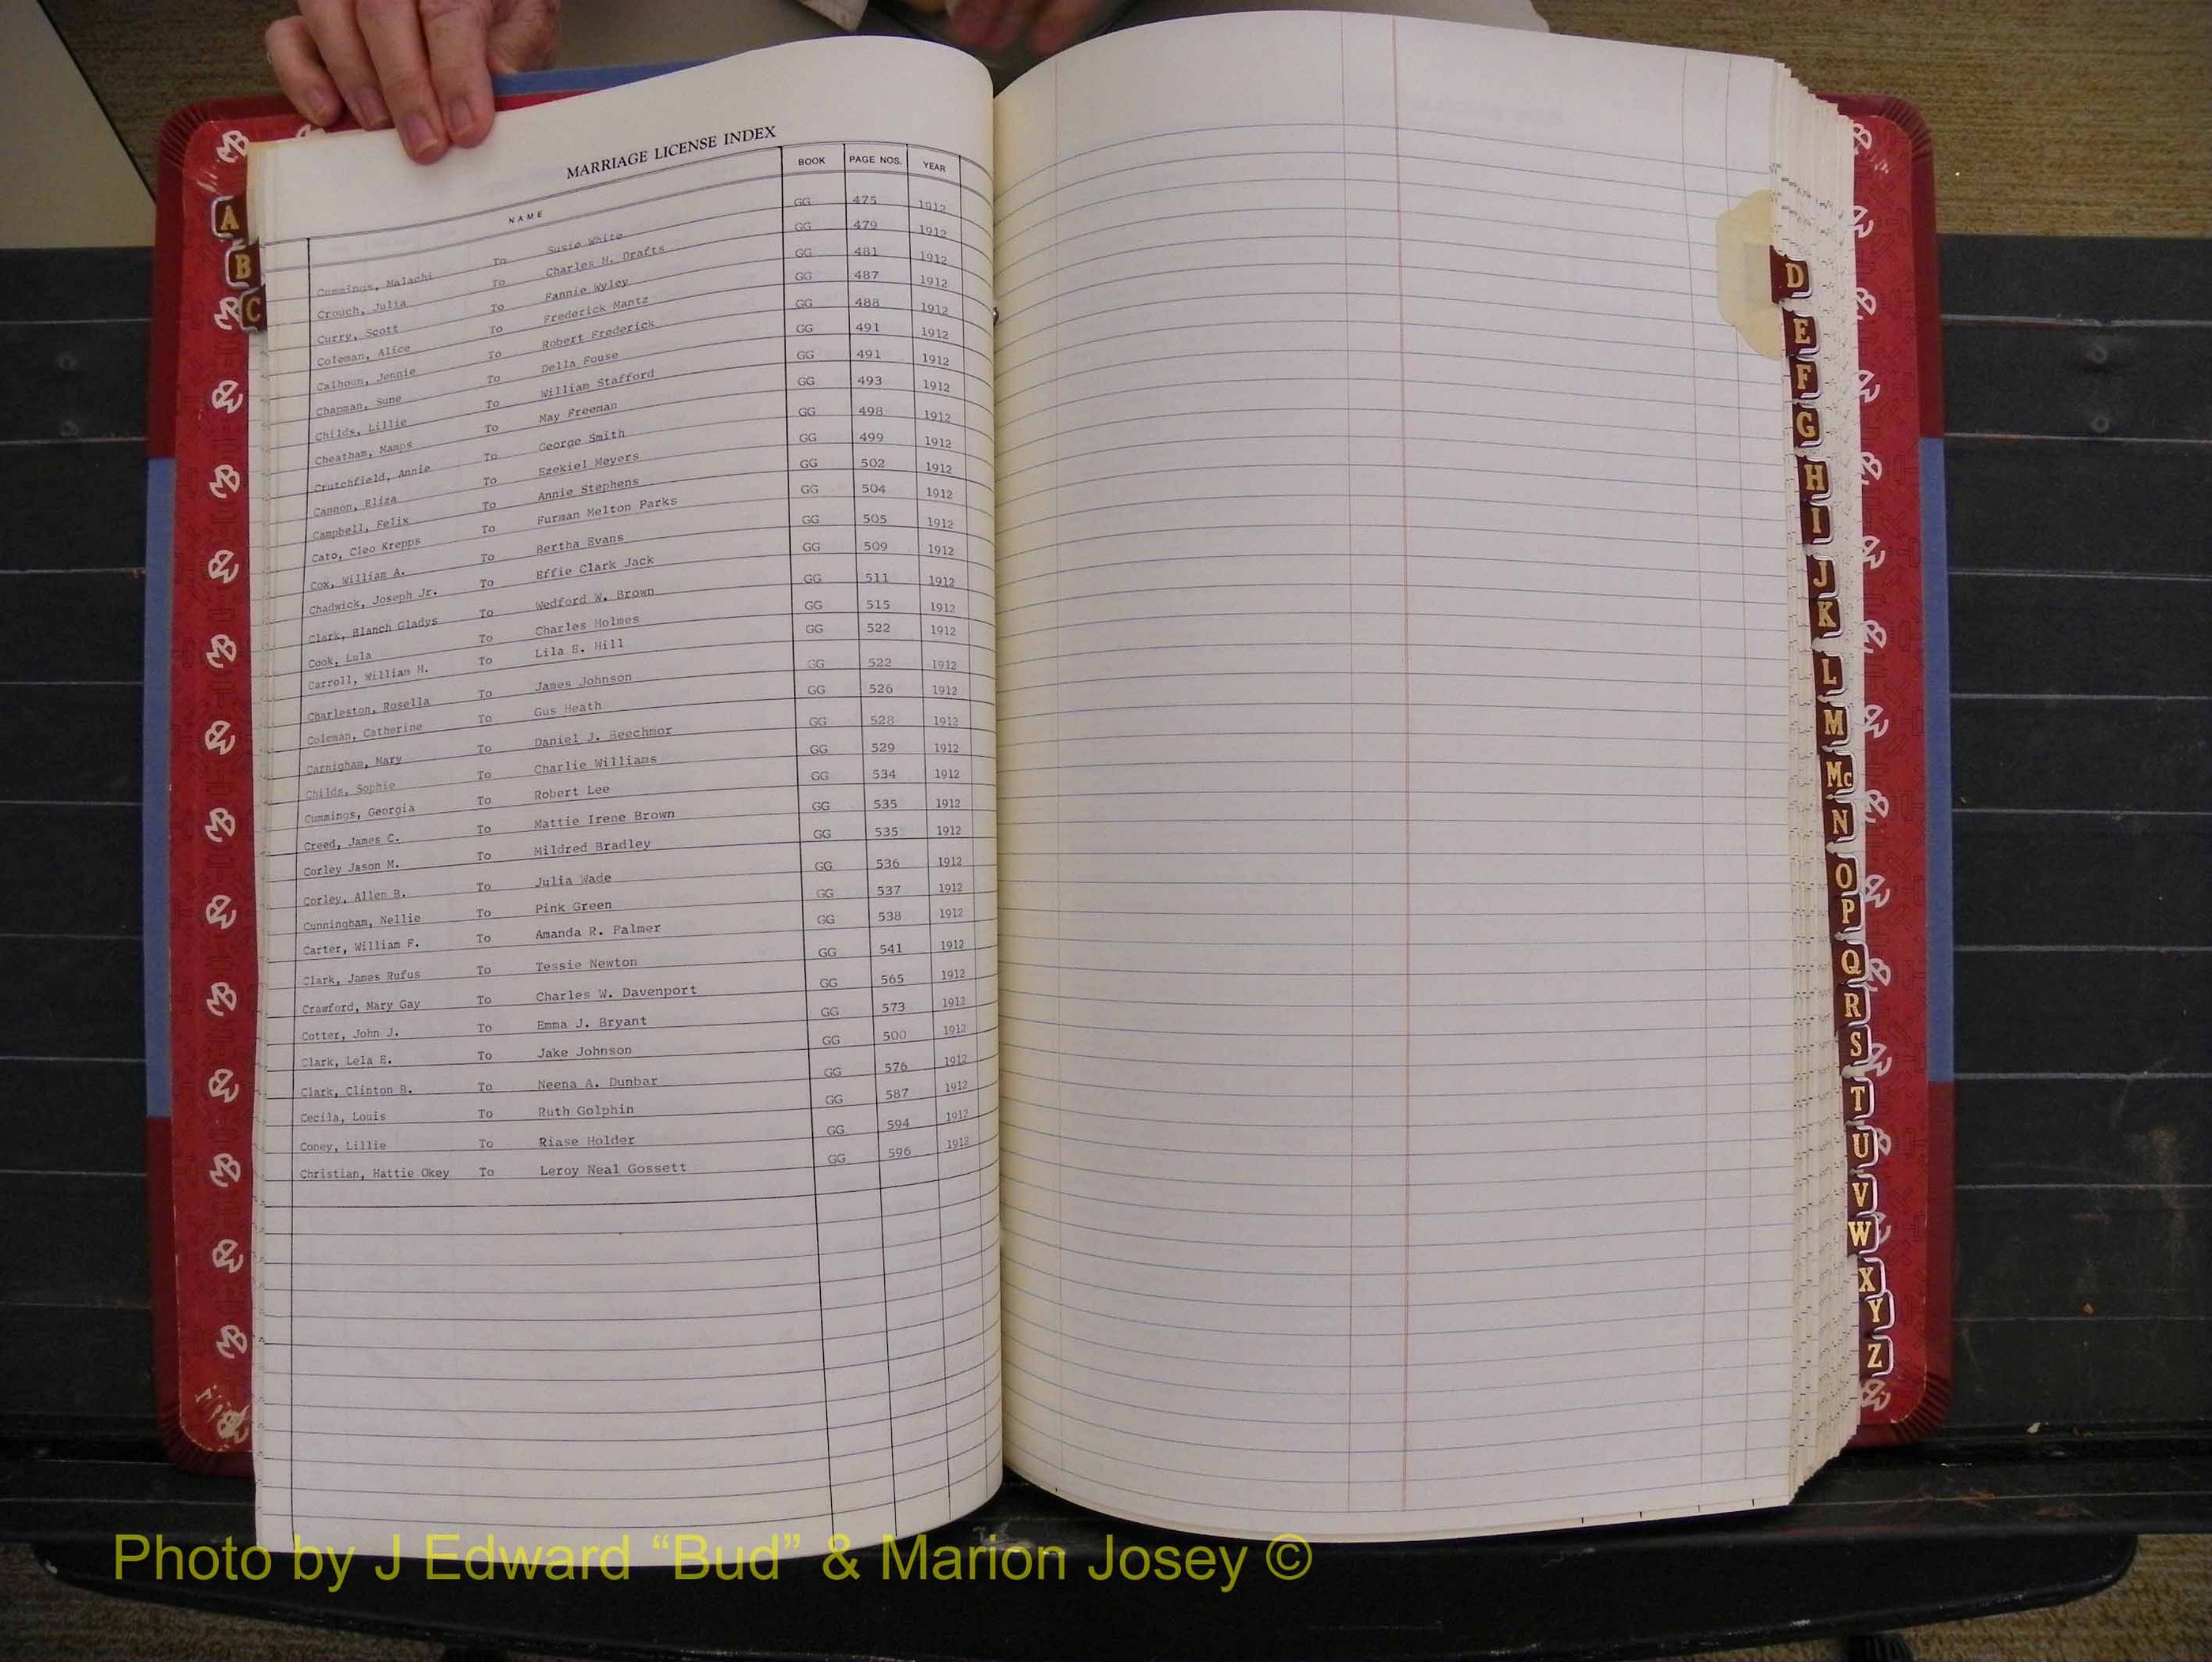 MARRIAGE LICENSE INDEX
NAME BOOK PAGE NOS. YEAR
Cummings, Malachi To Susie White GG 475 1912
Crouch, Julia To Charles H. Drafts GG 479 1912
Curry, Scott To Fannie Wyley GG 481 1912
Coleman, Alice To Frederick Mantz GG 487 1912
Calhoun, Jennie To Robert Frederick GG 488 1912
Chapman, Sune To Della Fouse GG 491 1912
Childs, Lillie To William Stafford GG 491 1912
Cheatham, Namps To May Freeman GG 493 1912
Crutchfield, Annie To George Smith GG 498 1912
Cannon, Eliza To Ezekiel Meyers GG 499 1912
Campbell, Felix To Annie Stephens GG 502 1912
Cato, Cleo Krepps To Furman Melton Parks GG 504 1912
Cox, William A. To Bertha Evans GG 505 1912
Chadwick, Joseph Jr. To Effie Clark Jack GG 509 1912
Clark, Blanch Gladys To Wedford W. Brown GG 511 1912
Cook, Lula To Charles Holmes GG 515 1912
Carroll, William H. To Lila E. Hill GG 522 1912
Charleston, Rosella To James Johnson GG 522 1912
Coleman, Catherine To Gus Heath GG 526 1912
Carnigham, Mary To Daniel J. Beechmor GG 528 1912
Childs, Sophie To Charlie Williams GG 529 1912
Cummings, Georgia To Robert Lee GG 534 1912
Creed, James C. To Mattie Irene Brown GG 535 1912
Corley Jason M. To Mildred Bradley GG 535 1912
Corley, Allen B. To Julia Wade GG 536 1912
Cunningham, Nellie To Pink Green GG 537 1912
Carter, William F. To Amanda R. Palmer GG 538 1912
Clark, James Rufus To Tessie Newton GG 541 1912
Crawford, Mary Gay To Charles W. Davenport GG 565 1912
Cotter, John J. To Emma J. Bryant GG 573 1912
Clark, Lela E. To Jake Johnson GG 500 1912
Clark, Clinton B. To Neena A. Dunbar GG 576 1912
Cecila, Louis To Ruth Golphin GG 587 1912
Coney, Lillie To Riase Holder GG 594 1912
Christian, Hattie Okey To Leroy Neal Gossett GG 596 1912
A
B
C
D
E
F
G
H
I
J
K
L
M
Mc
N
O
P
Q
R
S
T
U
V
W
X
Y
Z
Photo by J Edward “Bud” & Marion Josey ©